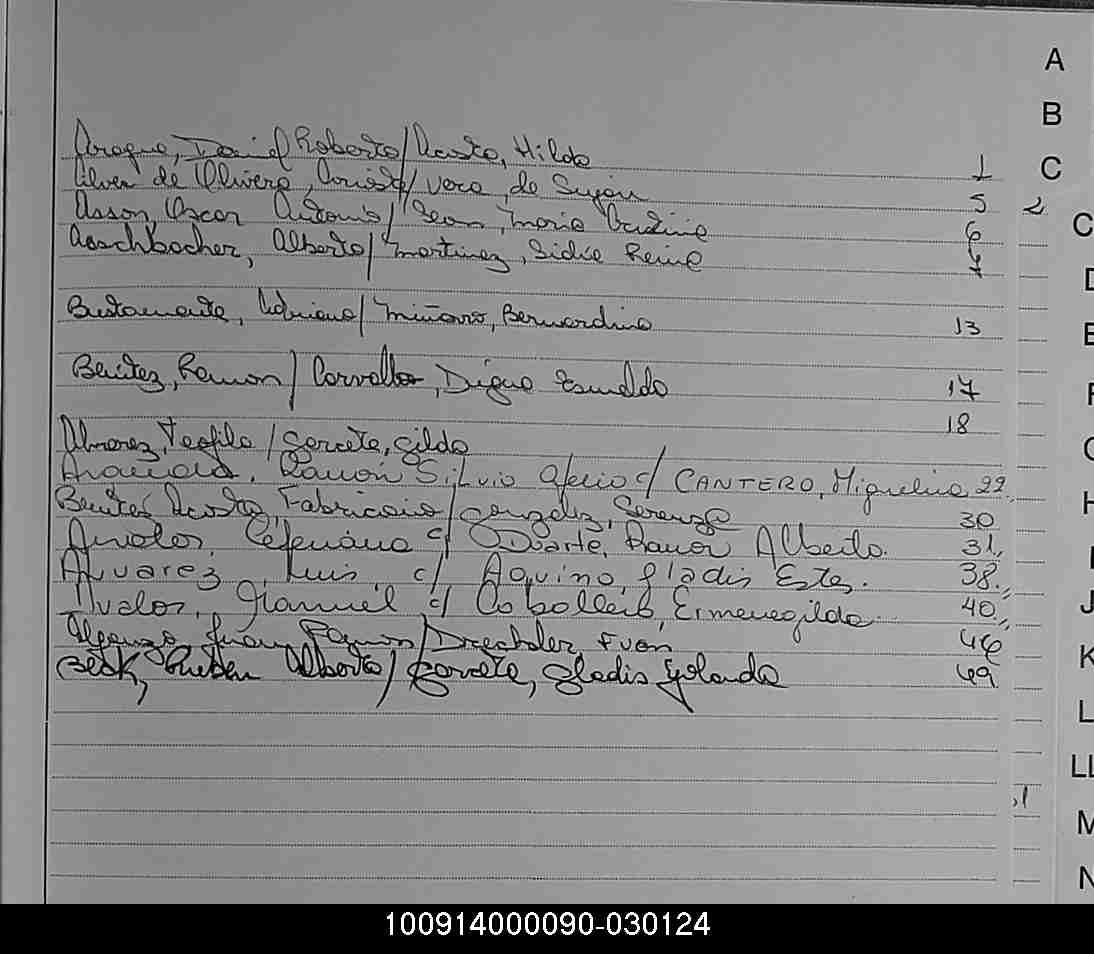 Araque, Daniel Roberto/Acosta, Hilda 1
de Olivera, / Vera, de Sujan 5
Asson, Oscar Antonio/ Maria 6
Aeschbacher, Alberto/ Martinez, Sidia Reina 7
Bustamante, Adriano/ Miñarro, Bernardina 13
Benitez, Ramon/ Carvallo, Digna Esmelda 17
18
Alvarez, Teofilo/ Gercete, Gilda
Ramón Silvio c/ CANTERO, Miguelina 22
Benitez Acosta, Fabriciano/ Gonzalez, Lorenza 30
Avalos, Ceferiana c/ Duarte, Ramon Alberto. 31
Alvarez, Luis, c/ Aquino, Gladis Ester. 38
Avalos, Manuel c/ Caballero, Ermenegilda 40
Alfonzo, Juan Ramon/ Drechsler, 46
Beck, Ruben Alberto/ Gorcete, Gladis Yolanda 49
A
B
C
2
C
D
E
F
G
H
I
J
K
L
LL
M
N
100914000090-030124